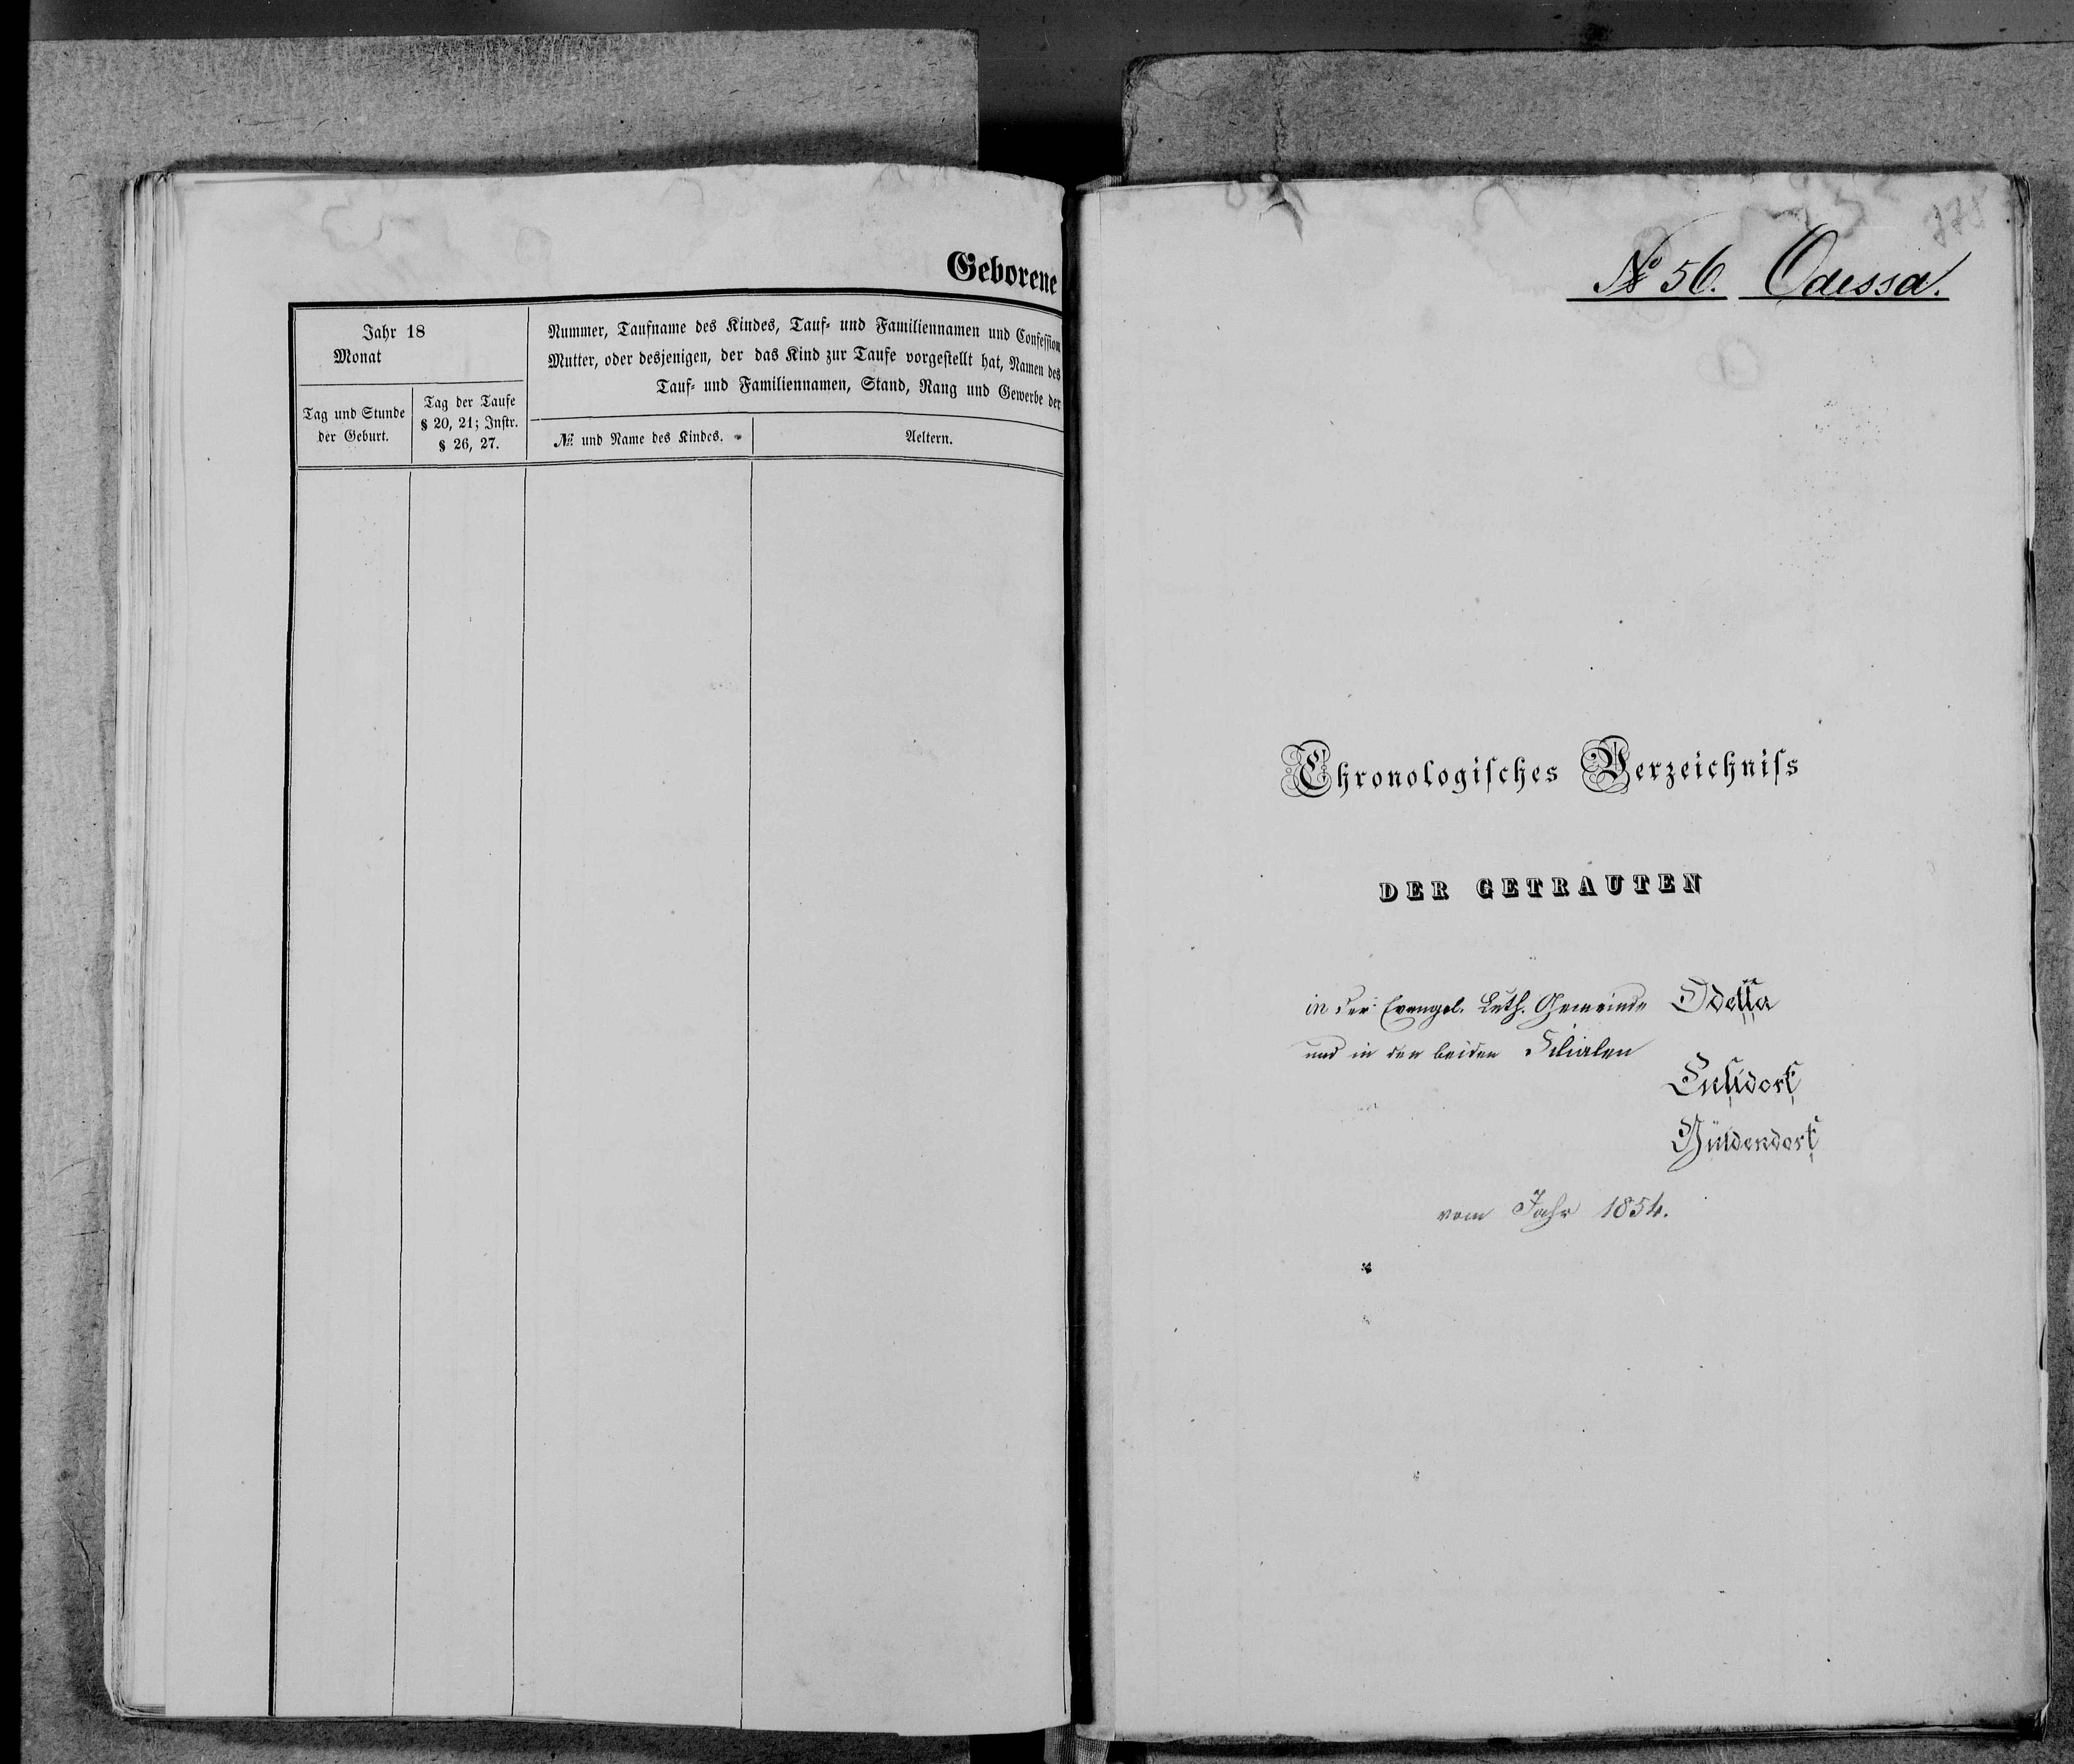 Geborene
Jahr 18
Monat
Tag und Stunde
der Geburt.
Tag der Taufe
§ 20, 21; Instr.
§ 26, 27.
Nummer, Taufname des Kindes, Tauf- und Familiennamen und Confession
Mutter, oder desjenigen, der das Kind zur Taufe vorgestellt hat, Namen des
Tauf- und Familiennamen, Stand, Rang und Gewerbe der
№ und Name des Kindes.
Aeltern.
№ 56. Odessa.
Chronologisches Verzeichniss
DER GETRAUTEN
in der Evangel. Luth. Gemeinde Odessa
und in den beiden Filialen
Lustdorf
Güldendorf
vom Jahr 1854.